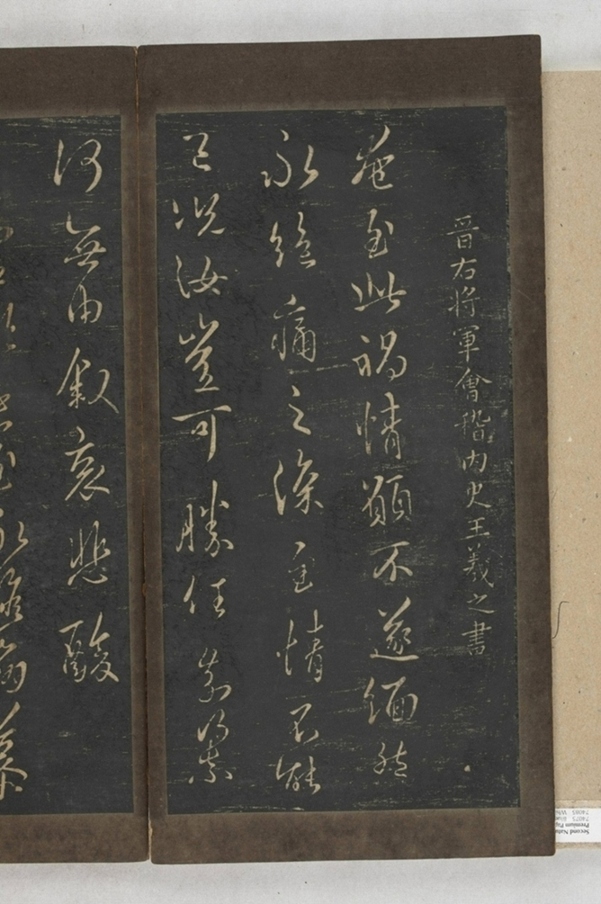 晉右將軍會稽内史王羲之書
奄至此禍情願不遂緬然
永絶痛之深至情不能
已況汝豈可勝任奈何奈
何無由敘哀悲酸